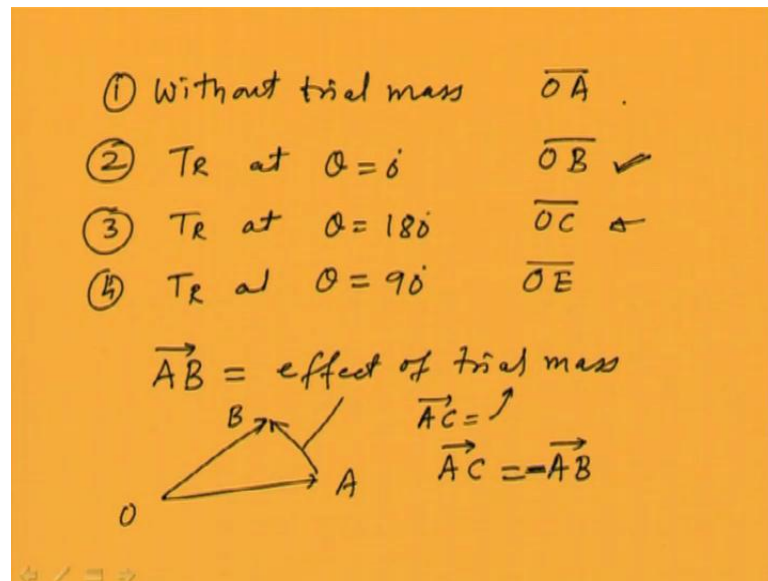 ① Without trial mass OA .
② TR at θ = 0°  OB ✓
③ TR at θ = 180°  OC
④ TR at θ = 90°  OE
AB = effect of trial mass
B AC =
A AC = -AB
O